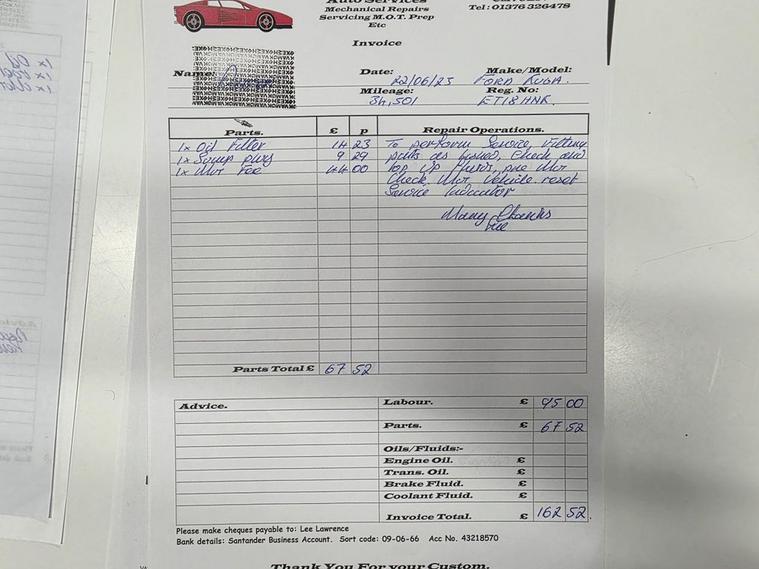 Auto Services
Mechanical Repairs
Servicing M.O.T. Prep
Etc
Tel: 01376 326478
Invoice
Name:
Date: 22/06/23
Make/Model: FORD KUGA.
Mileage: 34,501
Reg. No: ET18 HNK.
Parts. £ p Repair Operations.
1x Oil Filter 14 23 To perform Service, Fitting
1x Sump plug 9 29 parts as listed, Check and
1x MOT Fee 44 00 top up fluids, pre MOT
Check, MOT Vehicle reset
Service Indicator
Many Thanks
Lee
Parts Total £ 67 52
Advice.
Labour. £ 95 00
Parts. £ 67 52
Oils/Fluids:-
Engine Oil. £
Trans. Oil. £
Brake Fluid. £
Coolant Fluid. £
Invoice Total. £ 162 52
Please make cheques payable to: Lee Lawrence
Bank details: Santander Business Account. Sort code: 09-06-66 Acc No. 43218570
Thank You For your Custom.